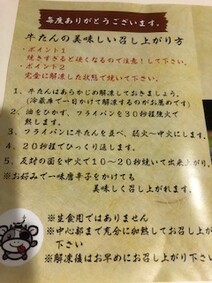 毎度ありがとうございます。
牛たんの美味しい召し上がり方
・ポイント1
焼きすぎると硬くなるので注意!して下さい。
・ポイント2
完全に解凍した状態で焼いて下さい。
1、牛たんはあらかじめ解凍しておきましょう。
(冷蔵庫で一日かけて解凍するのがお薦めです)
2、油をひかず、フライパンを30秒程強火で
熱します。
3、フライパンに牛たんを並べ、弱火~中火にします。
4、20秒程でひっくり返します。
5、反対の面を中火で10~20秒焼いて出来上がり。
※お好みで一味唐辛子をかけても
美味しく召し上がれます。
※生食用ではありません
※中心部まで充分に加熱してお召し上が
下さい
※解凍後はお早めにお召し上がり下さい。